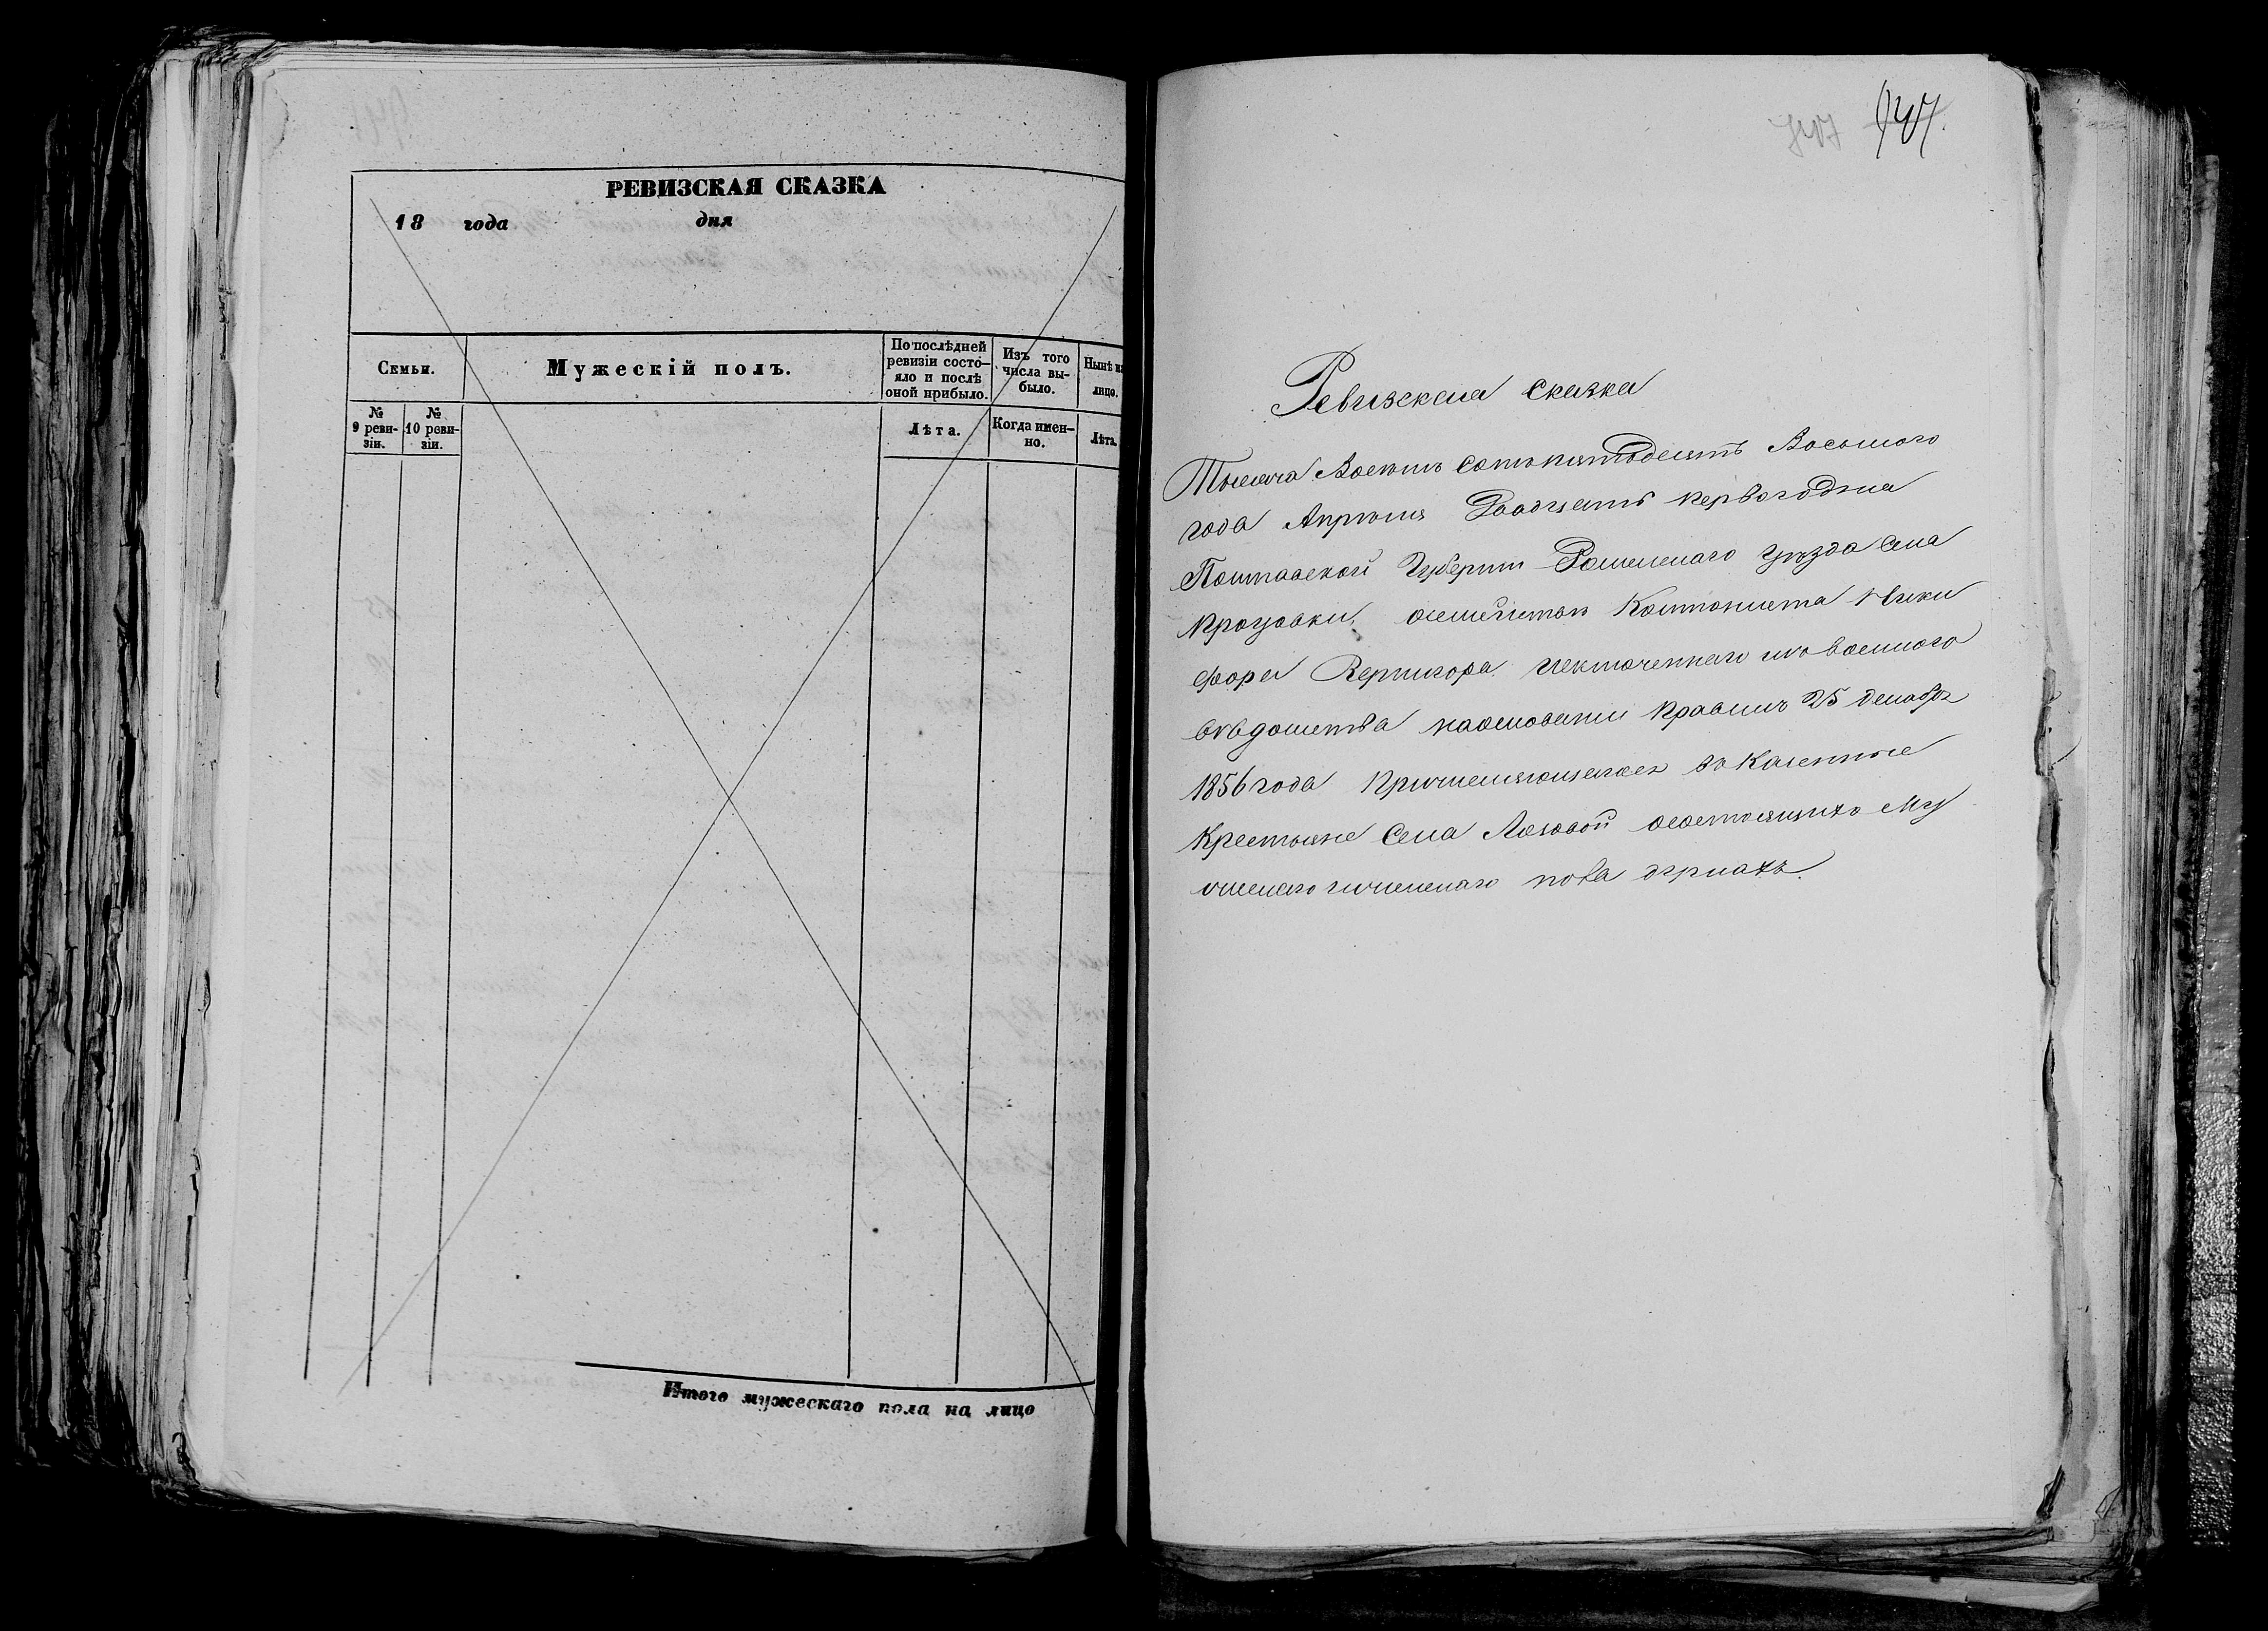 РЕВИЗСКАЯ СКАЗКА
18 года дня
Семьи.
№ 9 реви-зіи.
№ 10 реви-зіи.
Мужескій полъ.
По послѣдней ревизіи состо-яло и послѣ оной прибыло.
Лѣта.
Изъ того числа вы-было.
Когда имен-но.
Нынѣ на лицо.
Лѣта.
Итого мужескаго пола на лицо
747
Ревизская сказка
Тысяча Восемь сотъ пятьдесятъ Восьмого
года Апрѣля Двадцать первого дня
Полтавской Губерніи Роменскаго уѣзда села
Процовки, Кантониста Ники
фора Вернигора исключеннаго изъ военного
вѣдомства наосновании правилъ 25 декабря
1856 года Причисляющагося в Казенные
Крестьяне Села Лозовой осостоящихъ Му
жескаго иженскаго пола душахъ